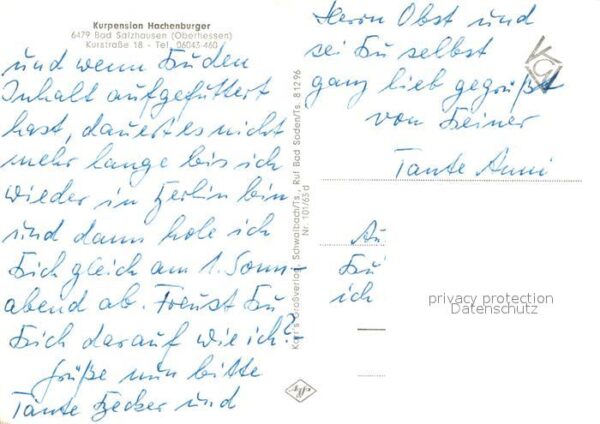 Kurpension Hachenburger
6479 Bad Salzhausen (Oberhessen)
Kurstraße 18 - Tel. 06043-460
und wenn Du den
Inhalt aufgefuttert
hast, dauert es nicht
mehr lange bis ich
wieder in Berlin bin
und dann hole ich
Dich gleich am 1. Sonn-
abend ab. Freust Du
Dich darauf wie ich?
Grüße nun bitte
Tante Becker und
Herrn Obst und
sei Du selbst
ganz lieb gegrüßt
von Deiner
Tante Anni
Au
Du
ich
Großverlag, Schwalbach/Ts., Ruf Bad Soden/Ts. 81296
Nr. 101/63 d
privacy protection
Datenschutz